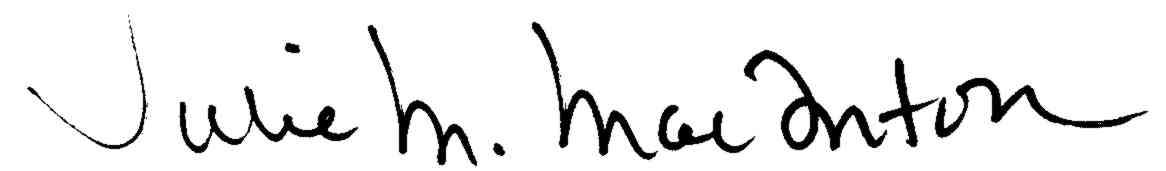 Julie M. MacDonton